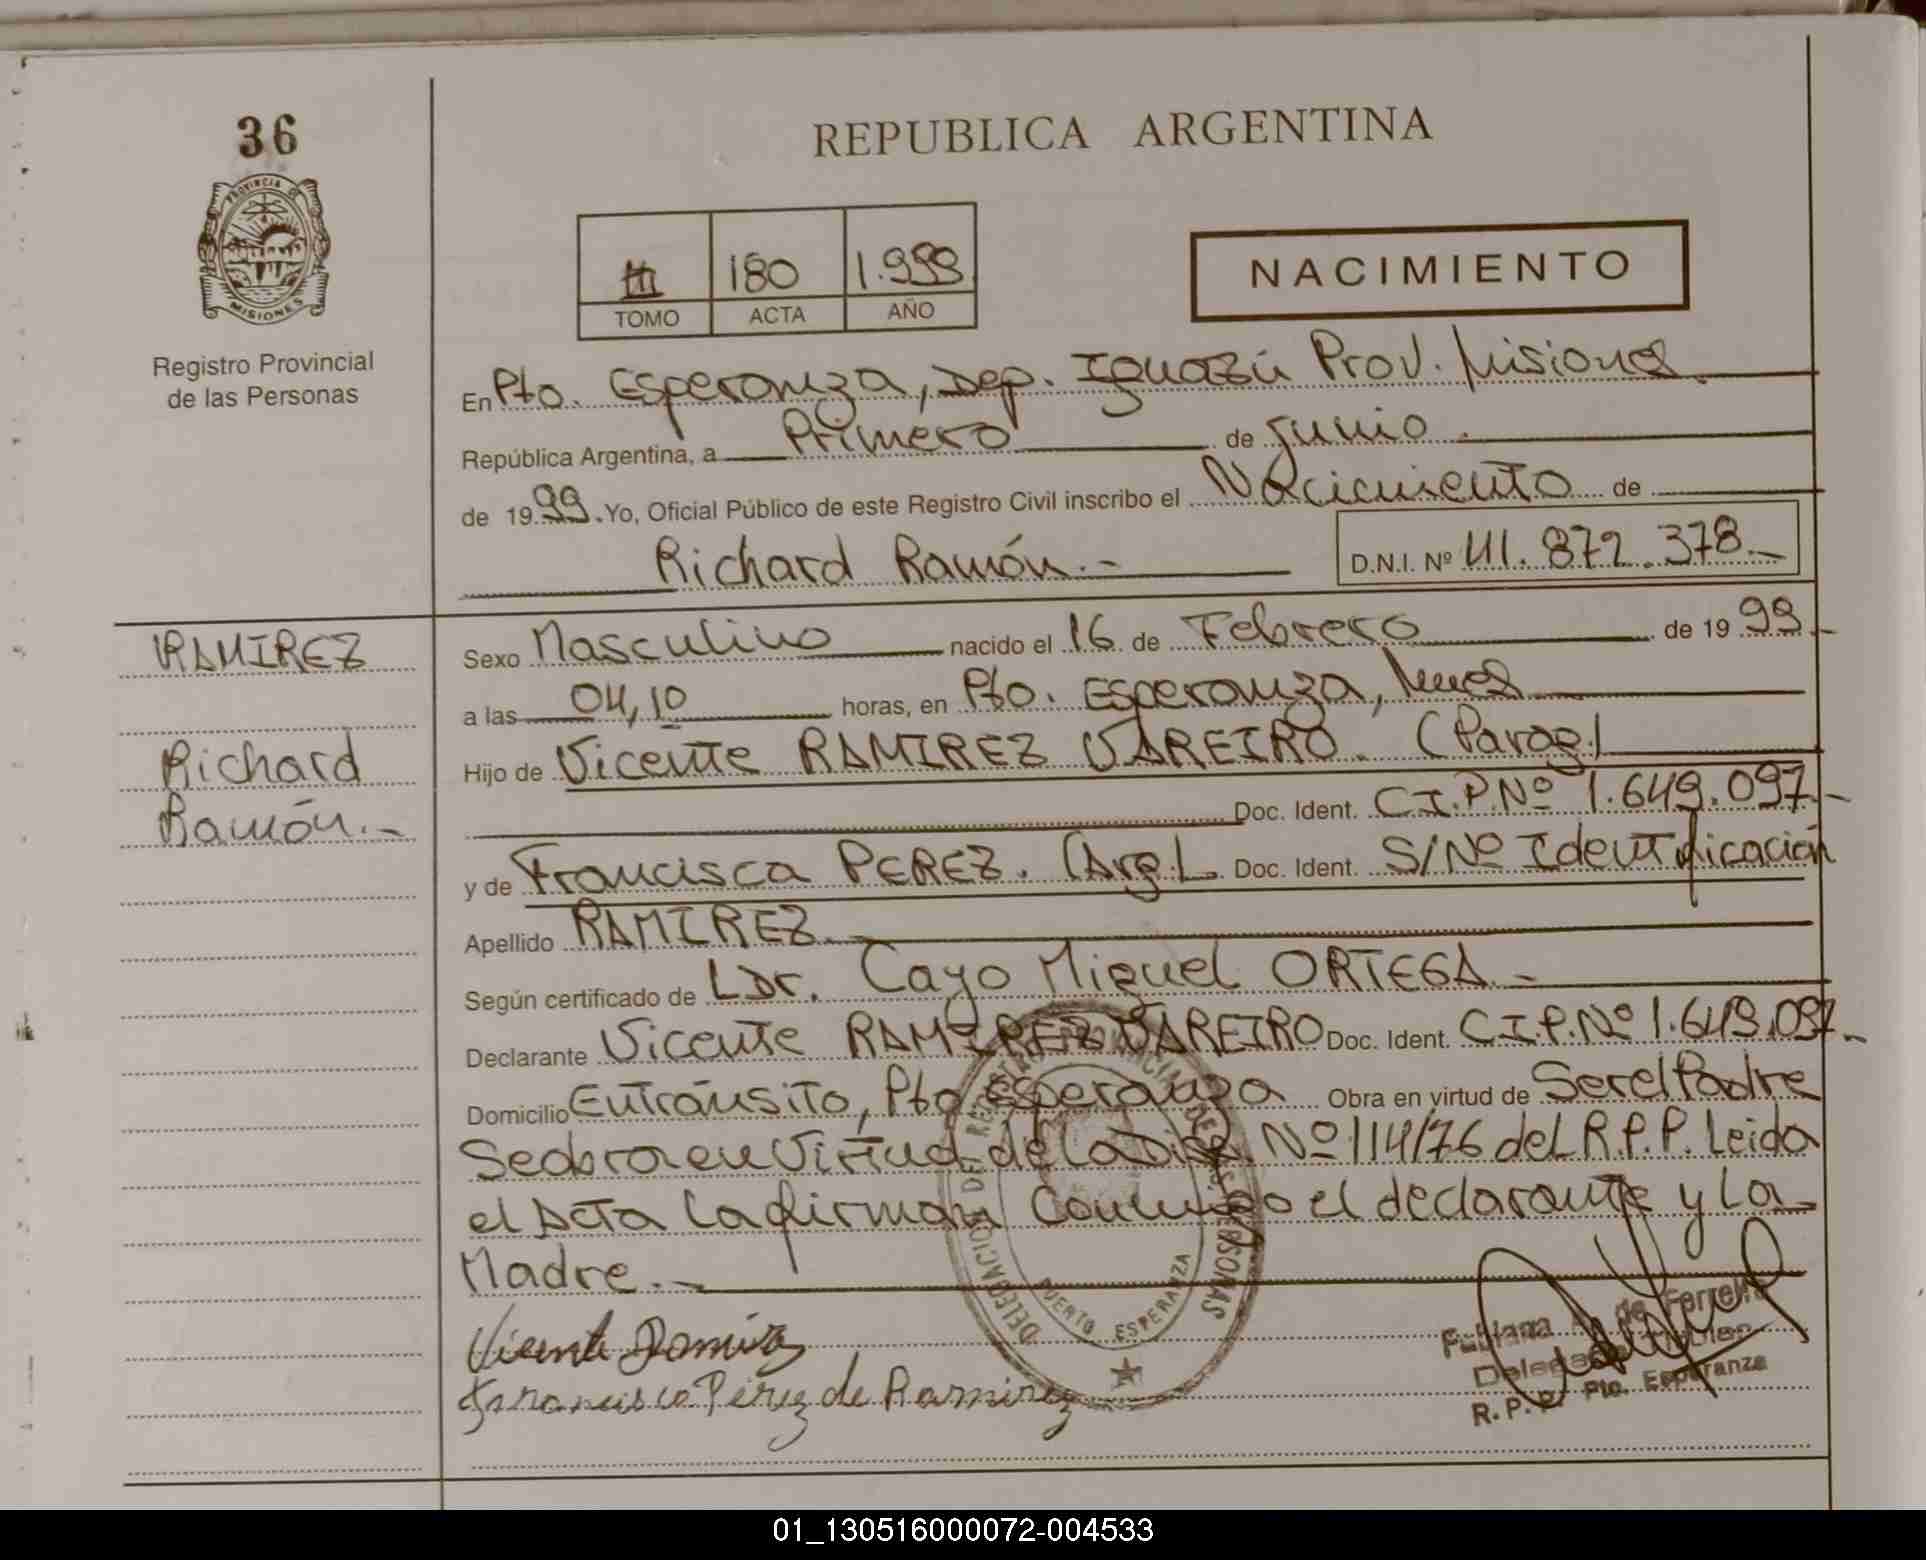 36
REPUBLICA ARGENTINA
PROVINCIA DE MISIONES
Registro Provincial
de las Personas
III 180 1.999
TOMO ACTA AÑO
NACIMIENTO
En Pto. Esperanza, Dep. Iguazú Prov. Misiones
República Argentina, a Primero de Junio.
de 1999. Yo, Oficial Público de este Registro Civil inscribo el Nacimiento de
Richard Ramón.- D.N.I. Nº 41.872.378.-
RAMIREZ
Richard
Ramón.-
Sexo Masculino nacido el 16 de Febrero de 1999.-
a las 04,10 horas, en Pto. Esperanza, Mnes
Hijo de Vicente RAMIREZ VAREIRO. (Parag.)
Doc. Ident. C.I.P.Nº 1.649.097.-
y de Francisca PEREZ. (Arg.). Doc. Ident. S/Nº Identificación
Apellido RAMIREZ.-
Según certificado de L Dr. Cayo Miguel ORTEGA.-
Declarante Vicente RAMIREZ VAREIRO Doc. Ident. C.I.P.Nº 1.649.097.-
Domicilio En Tránsito, Pto Esperanza Obra en virtud de Ser el Padre
Se obra en Virtud de la Disp. Nº 114/76 del R.P.P. Leida
el Acta la firman Conmigo el declarante y la
Madre.-
DELEGACION DE REGISTRO PROVINCIAL DE LAS PERSONAS
PUERTO ESPERANZA
Vicente Ramirez
Francisca Pérez de Ramirez
de Ferreira
R.P.P. Pto. Esperanza
01_130516000072-004533